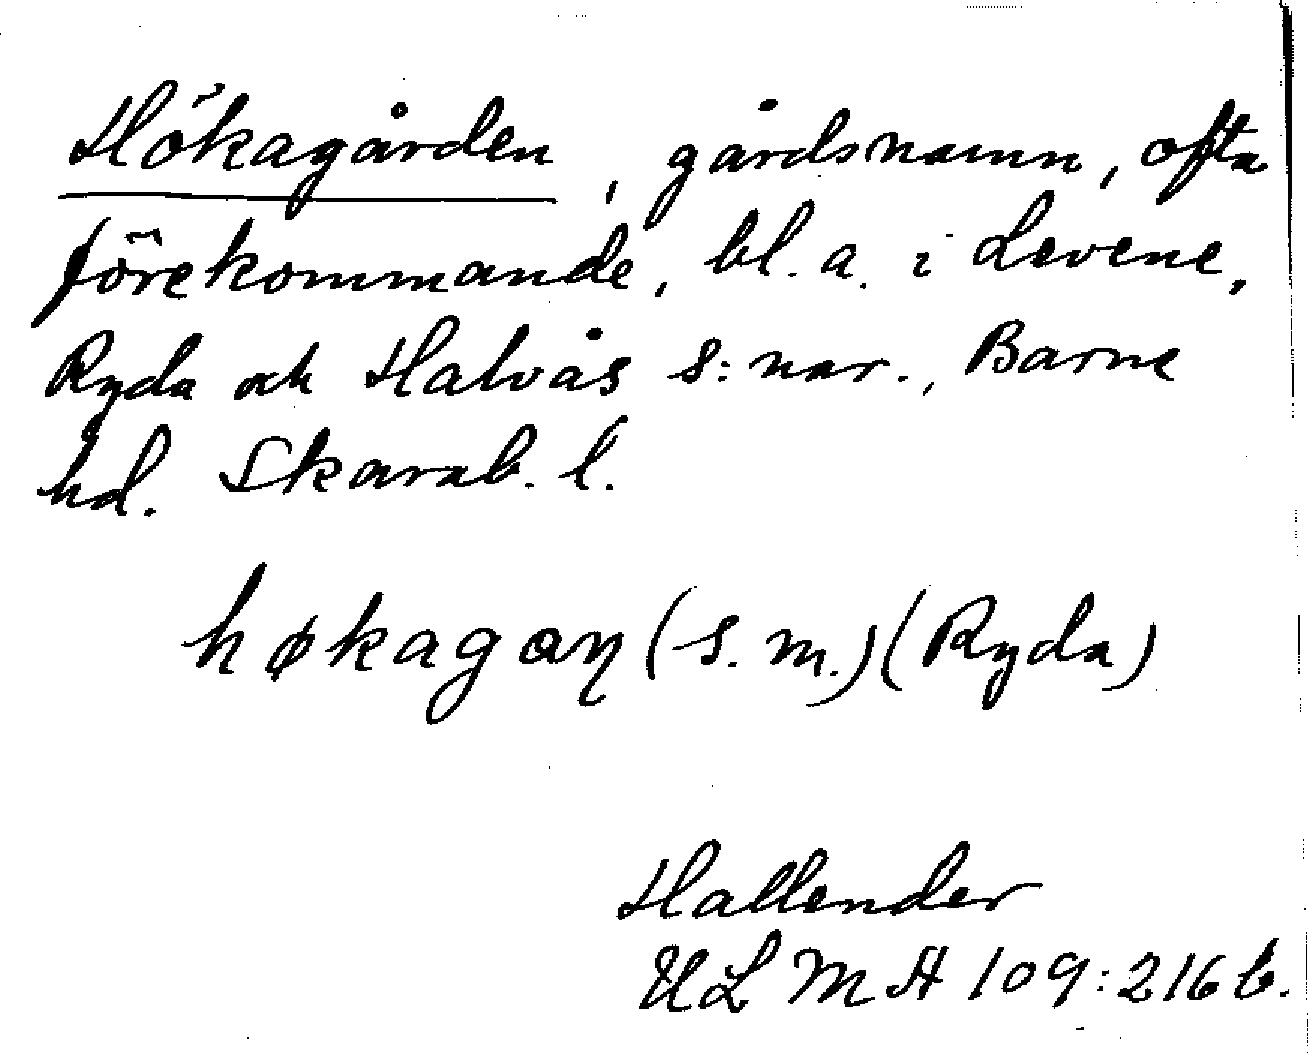 Hökagården, gårdsnamn, ofta
förekommande, bl. a. i Levene,
Ryda och Halvås s:nar., Barne
hd. Skarab. l.
høkagaɳ (s. m.) (Ryda)
Hallender
ULMA 109:216 b.